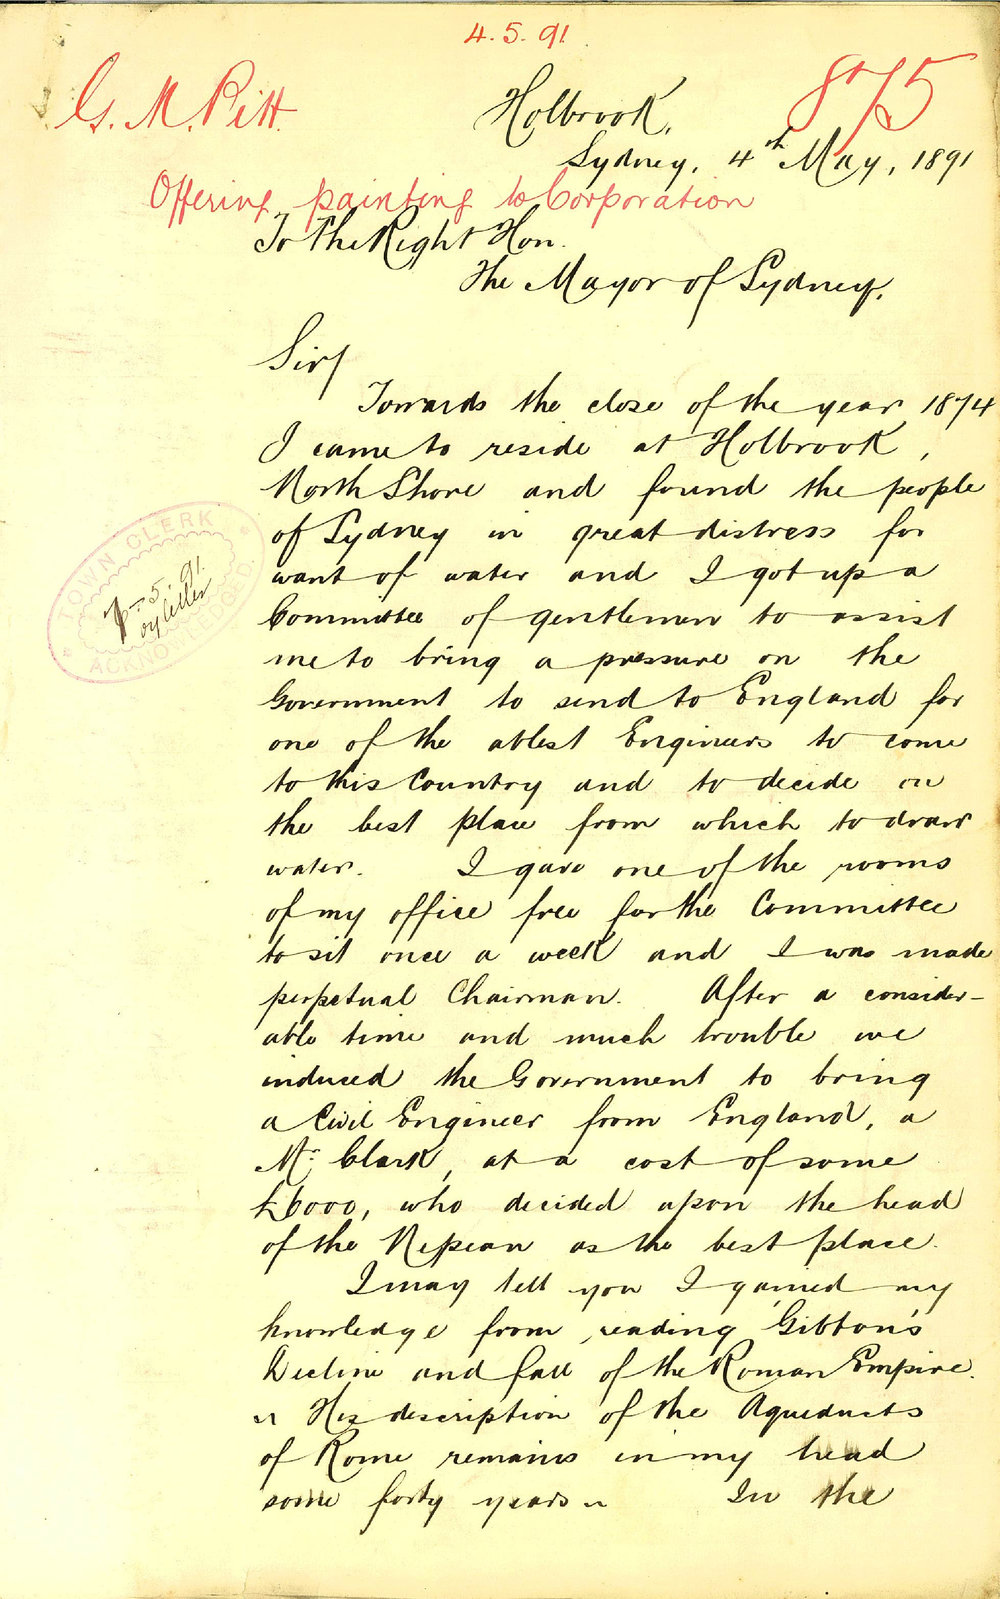 4.5.91.
G. M. Pitt.
875
Holbrook,
Sydney, 4th May, 1891
Offering painting to Corporation
To The Right Hon.
The Mayor of Sydney.
Sir/
Towards the close of the year 1874
I came to reside at Holbrook,
North Shore and found the people
of Sydney in great distress for
want of water and I got up a
Committee of gentlemen to assist
me to bring a pressure on the
Government to send to England for
one of the ablest Engineers to come
to this Country and to decide on
the best place from which to draw
water. I gave one of the rooms
of my office free for the Committee
to sit once a week and I was made
perpetual Chairman. After a consider-
able time and much trouble we
induced the Government to bring
a Civil Engineer from England, a
Mr. Clark, at a cost of some
£6000, who decided upon the head
of the Nepean as the best place.
I may tell you I gained my
knowledge from reading Gibbon's
Decline and fall of the Roman Empire.
" His description of the Aqueducts
of Rome remains in my head
some forty years " In the
TOWN CLERK
5. 91.
by letter
ACKNOWLEDGED.